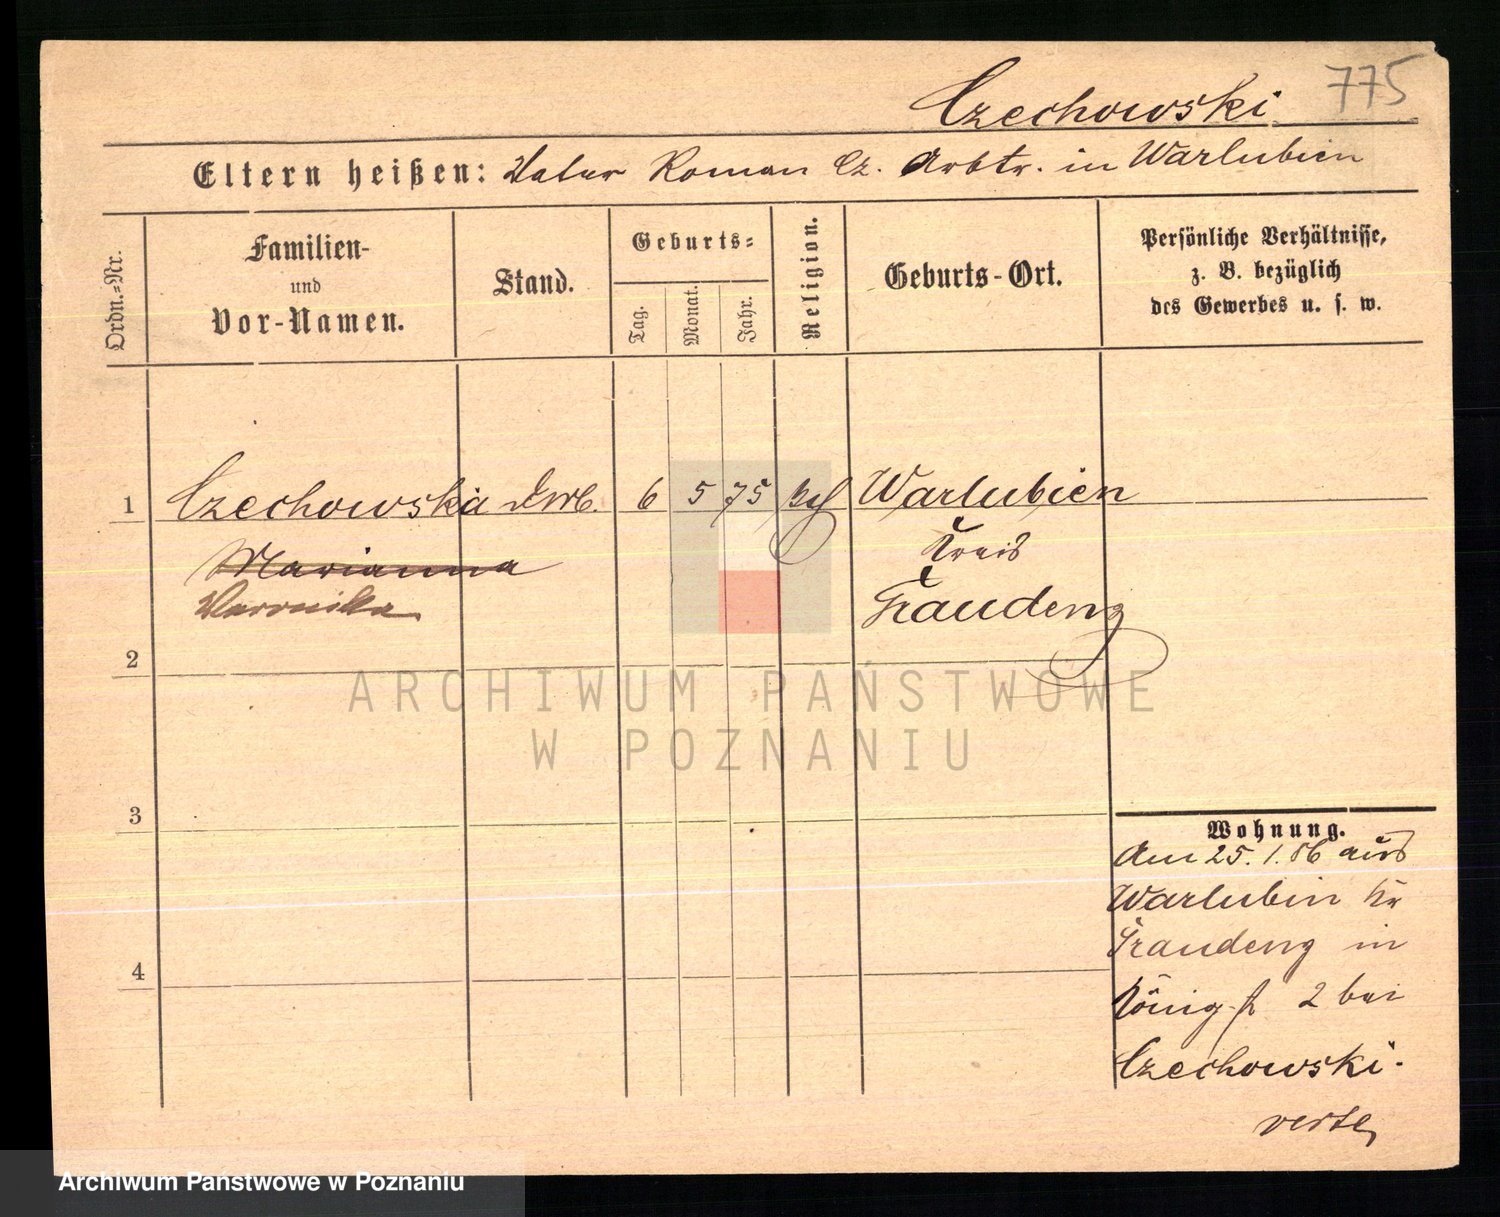 Czechowski
775
Eltern heißen: Vater Roman Cz. Arbtr. in Warlubien
Ordn.=Nr.
Familien-
und
Vor-Namen.
Stand.
Geburts=
Tag.
Monat.
Jahr.
Religion.
Geburts-Ort.
Persönliche Verhältnisse,
z. B. bezüglich
des Gewerbes u. s. w.
1 Czechowska 6 5 75 Warlubien
Marianna
Kreis
Veronika
Graudenz
2
ARCHIWUM PAŃSTWOWE
W POZNANIU
3
Wohnung.
Am 25. 1. 86 aus
Warlubin Kr
Graudenz in
4
König 2 bei
Czechowski.
verte
Archiwum Państwowe w Poznaniu